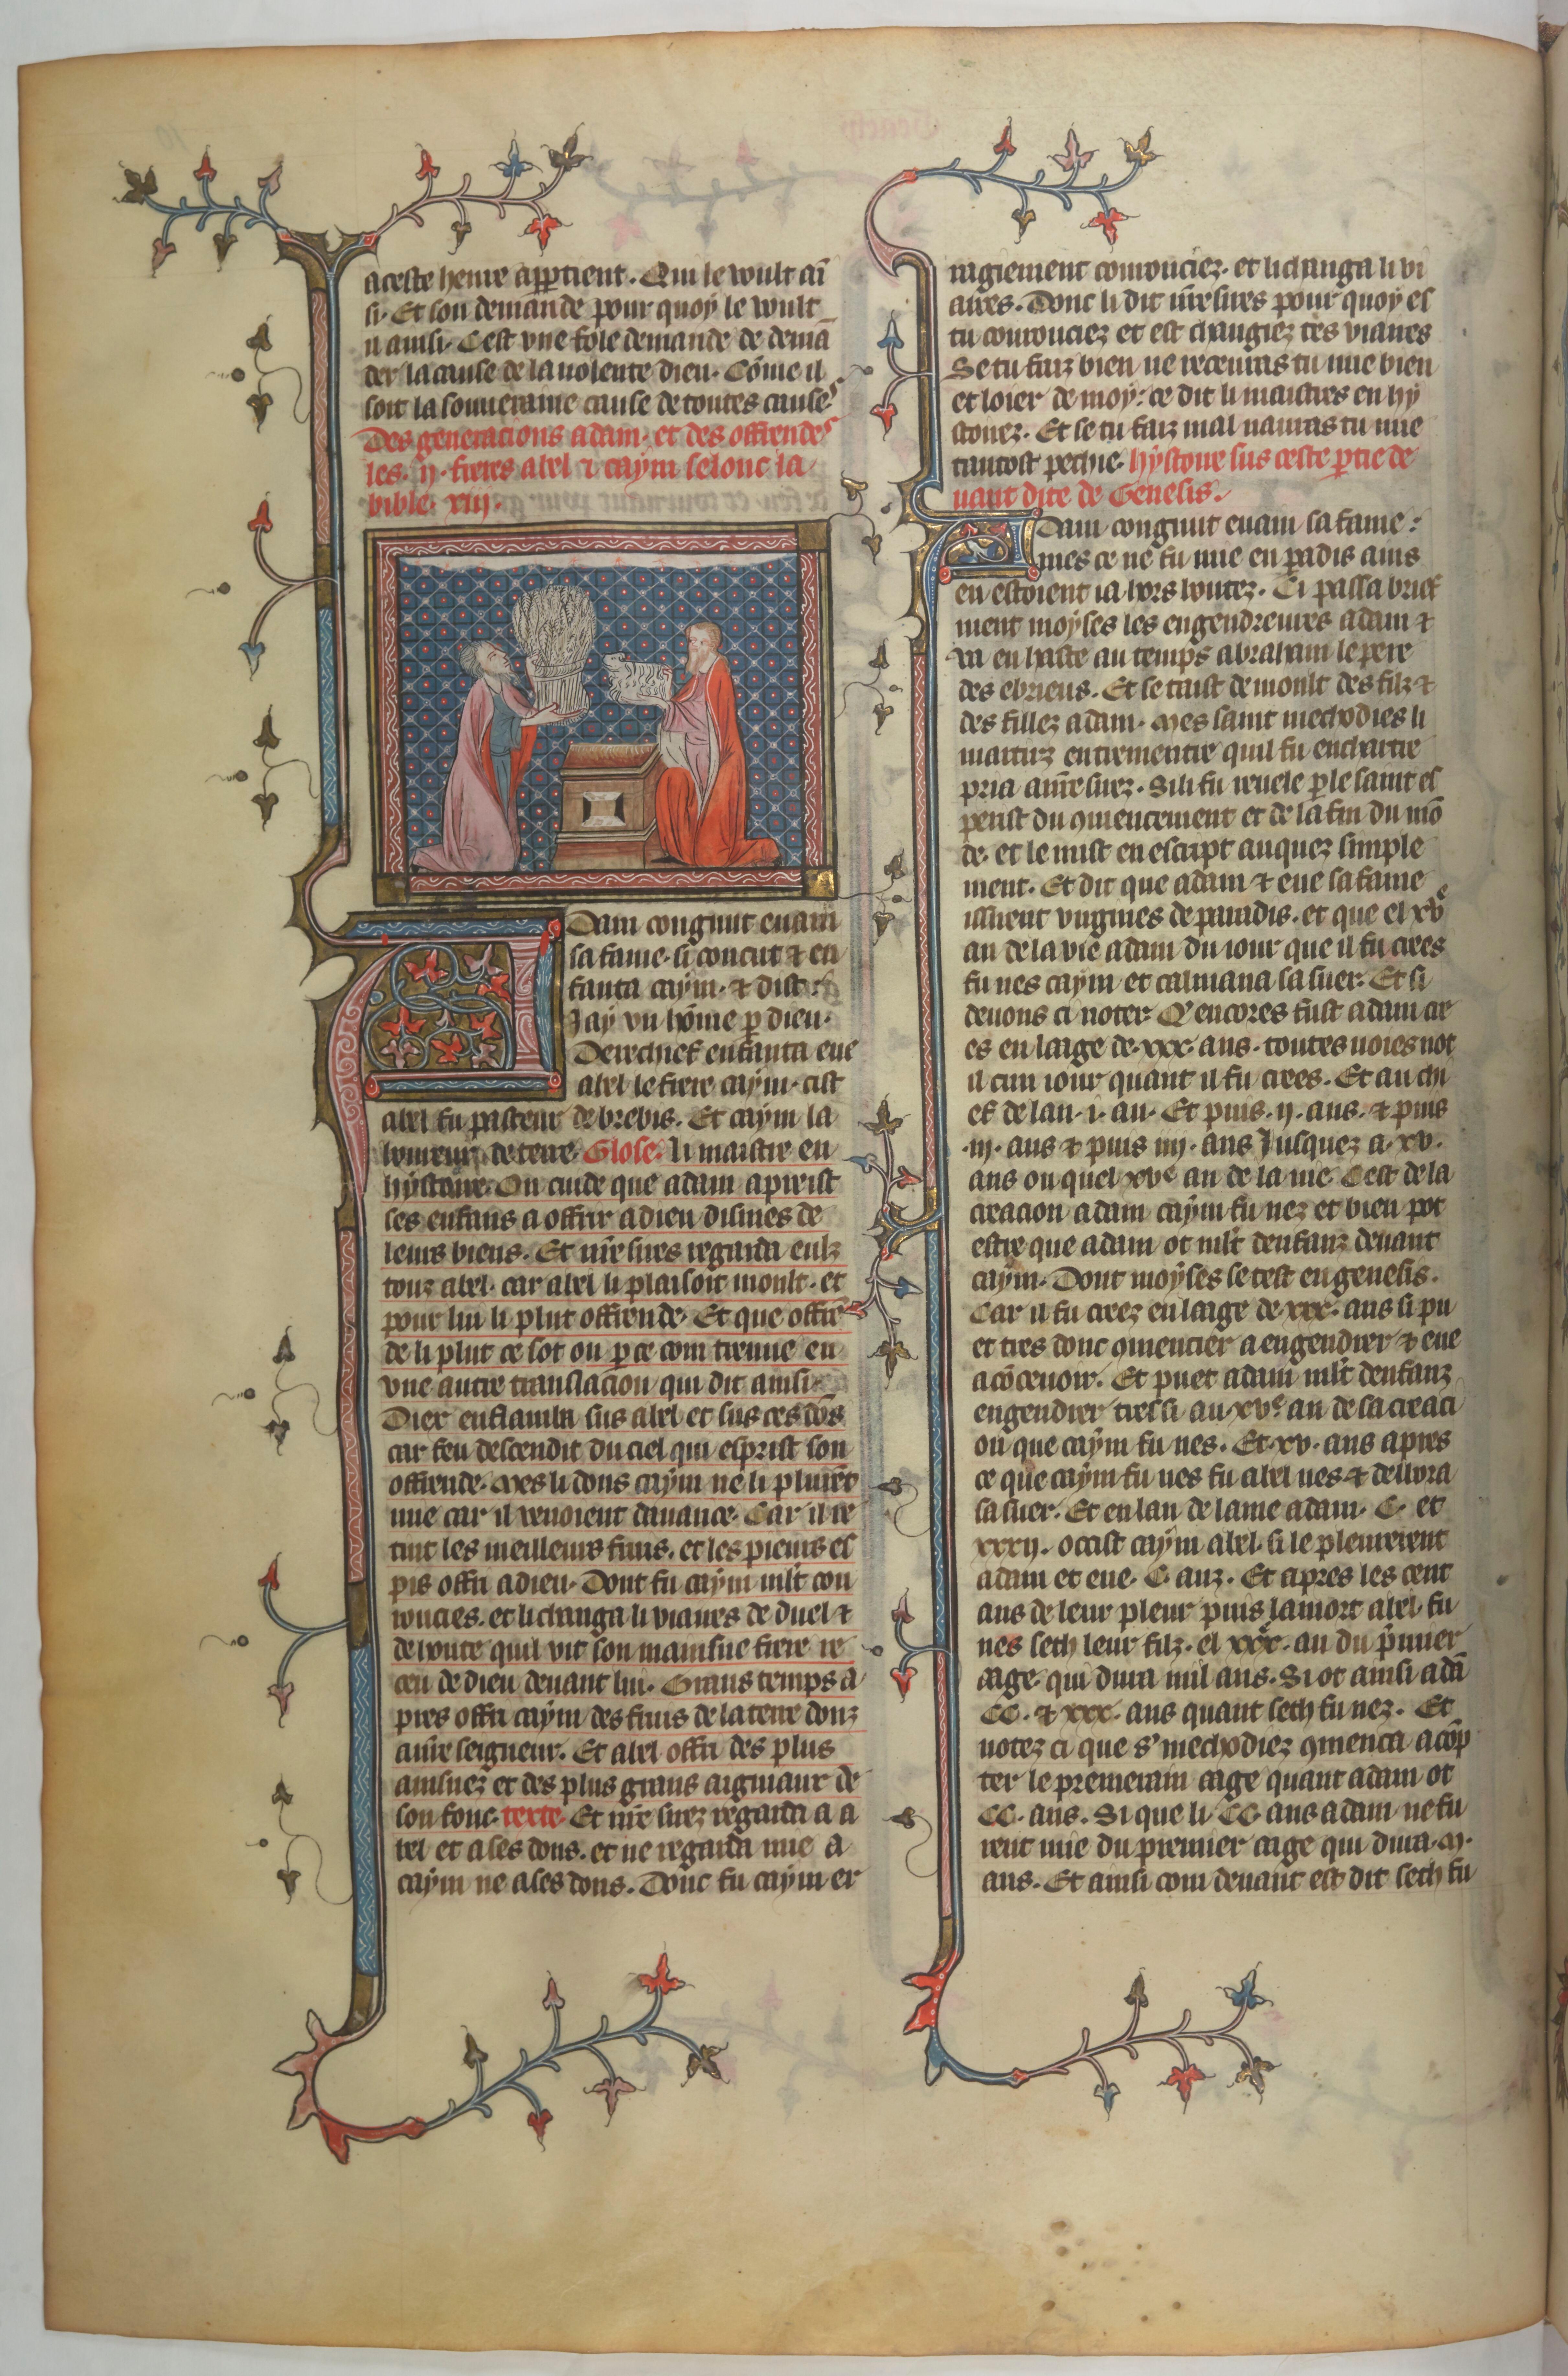 aceste heure appartient. Qui le voult ai
si. Et son demande pour quoy le voult
il ainsi. Cest vne fole demande de demā
der la cause de la uolente dieu. Cōme il
soit la souueraine cause de toutes causes
Des generacions adam. et des offrendes
les .ij. freres abel ⁊ caym selonc la
bible. xiij.
Adam congnut euam
sa fame. si concut ⁊ en
fanta caym. ⁊ dist.
Jay vn hōme p dieu.
Derechief enfanta eue
abel le frere caym. cist
abel fu pasteur de brebis. Et caym la
boureur de terre. Glose. li maistre en
hystoire. On cuide que adam aprist
ses enfans a offrir a dieu dismes de
leurs biens. Et nr̄e sires regarda eulz
touz abel. car abel li plaisoit moult. et
pour lui li plut offrende. Et que offrē
de li plut ce sot on p ce com treuue en
vne autre translacion qui dit ainsi.
Diex enflamba sus abel et sus ces dōs
car feu descendit du ciel qui esprist son
offrende. Mes li dons caym ne li plurēt
mie car il venoient dauarice. Car il re
tint les meilleurs fruis. et les pieurs es
pis offri a dieu. Dont fu caym ml̄t cou
rouciés. et li changa li viaires de duel ⁊
de honte quil vit son mainsne frere re
ceu de dieu deuant lui. Grans temps a
pres offri caym des fruis de la terre donz
a nr̄e seigneur. Et abel offri des plus
ainsnez et des plus gras aigniaux de
son fouc. texte. Et nr̄e sirez regarda a a
bel et a ses dons. et ne regarda mie a
caym ne a ses dons. Donc fu caym er
ragiement courouciez. et li changa li vi
aires. Donc li dit nr̄e sires pour quoy es
tu courouciez et est changiez tes viaires
Se tu faiz bien ne receuras tu mie bien
et loier de moy: ce dit li maistres en hy
stoirez. Et se tu faiz mal nauras tu mie
tantost pechie. hystoire sus ceste ptie de
uant dite de Genesis.
Adam congnut euam sa fame:
mes ce ne fu mie en padis ains
en estoient ia hors boutez. Ci passa brief
ment moyses les engendreures adam ⁊
va en haste au temps abraham le pere
des ebrieus. Et se taist de moult des filz ⁊
des fillez adam. Mes saint methodies li
martirz entrementre quil fu enchartre
pria a nr̄e sirez. Si li fu reuele p le saint es
perist du 9mencement et de la fin du mō
de. et le mist en escript auquez simple
ment. Et dit que adam ⁊ eue sa fame
issirent virgines de paradis. et que el xvᵉ
an de la vie adam du iour que il fu crees
fu nes caym et calmana sa suer. Et si
deuons ci noter. Q'encores fust adam cr
es en laage de .xxx. ans. toutes uoies not
il cun iour quant il fu crees. Et au chi
ef de lan .i. an. Et puis .ij. ans. ⁊ puis
.iij. ans ⁊ puis iiij. ans Jusquez a .xv.
ans ou quel xvᵉ an de la vie. Cest de la
creacion adam caym fu nez et bien pot
estre que adam ot ml̄t denfanz deuant
caym. Dont moyses se test en genesis.
Car il fu creez en laage de .xxx. ans si pu
et tres donc 9mencier a engendrer ⁊ eue
a cōceuoir. Et puet adam ml̄t denfanz
engendrer tres si au xvᵉ an de sa creaci
on que caym fu nes. Et .xv. ans apres
ce que caym fu nes fu abel nes ⁊ delbora
sa suer. Et en lan de lame adam. C. et
xxxij. occist caym abel. si le pleurerent
adam et eue. C. anz. Et apres les cent
ans de leur pleur puis la mort abel. fu
nes seth leur filz. el xxx. an du p̄mier
aage qui dura mil ans. Si ot ainsi adā
CC. ⁊ xxx. ans quant seth fu nez. Et
notez ci que s' methodiez 9menca a cōp
ter le premerain aage quant adam ot
CC. ans. Si que li .CC. ans adam ne fu
rent mie du premier aage qui dura .M.
ans. Et ainsi com deuant est dit seth fu